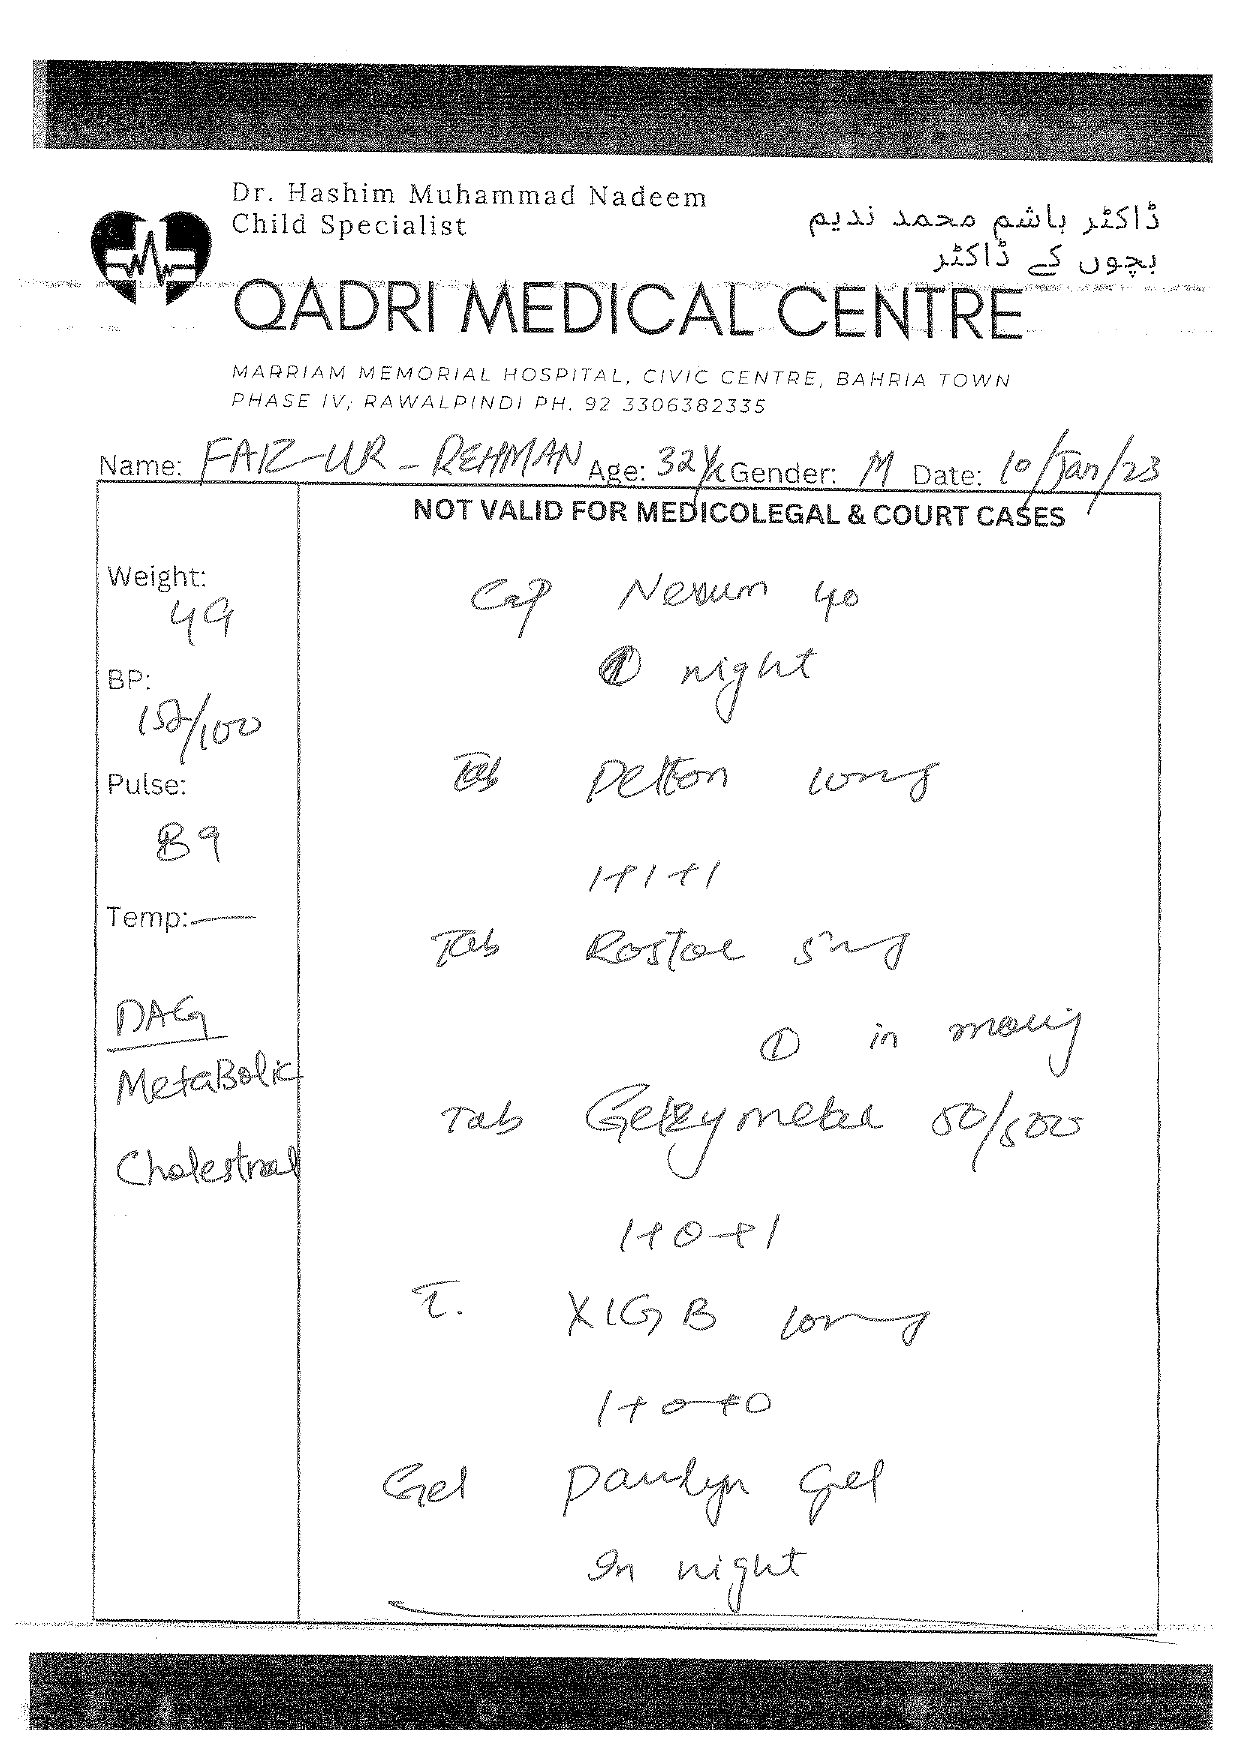 Dr. Hashim Muhammad Nadeem
Child Specialist
ڈاکٹر ہاشم محمد ندیم
بچوں کے ڈاکٹر
QADRI MEDICAL CENTRE
MARRIAM MEMORIAL HOSPITAL, CIVIC CENTRE, BAHRIA TOWN
PHASE IV, RAWALPINDI PH. 92 3306382335
Name: FAIZ-UR-REHMAN Age: 32 Gender: M Date: 10/Jan/23
NOT VALID FOR MEDICOLEGAL & COURT CASES
Weight:
49
BP:
152/100
Pulse:
89
Temp: —
DAG
MetaBolic
Cholestral
Cap Nexum 40
① night
Tab 10mg
1+1+1
Tab 5mg
① in
Tab 50/500
1+0+1
T. XIGB 10mg
1+0+0
Gel Gel
In night